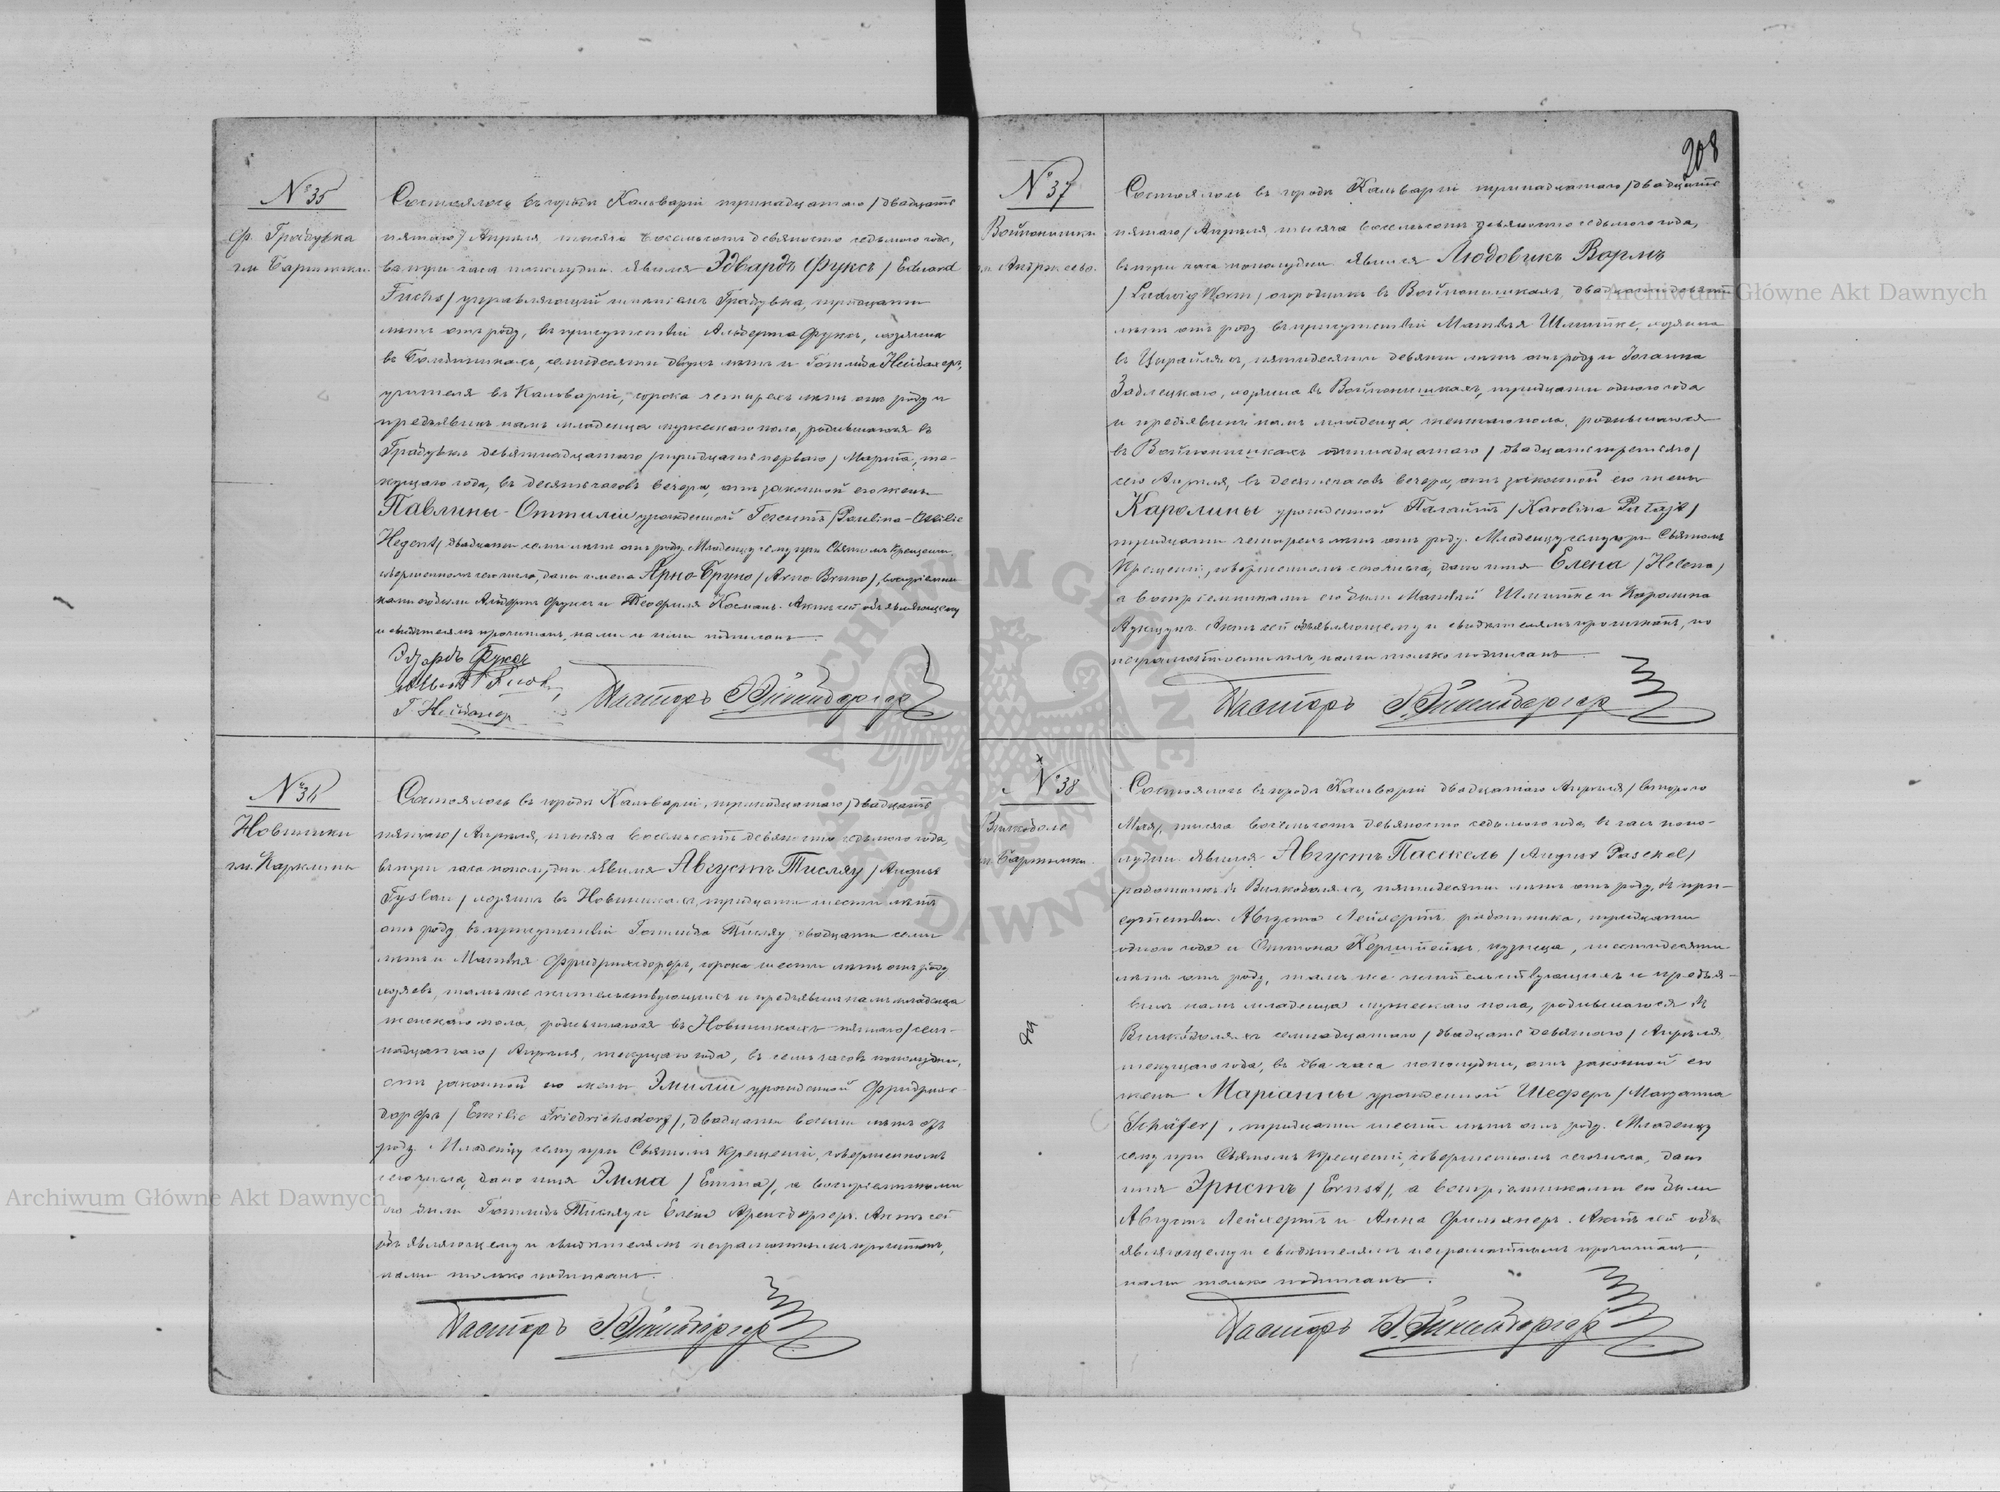 № 35
ф. Градувка
гм Бартники.
Состоялось въ городѣ Кальваріи тринадцатаго /двадцать
пятаго/ Апрѣля, тысяча восемьсотъ девяносто седьмого года,
въ три часа пополудни. Явился Эдвардъ Фуксъ / Eduard
Fuchs/ управляющій имѣніемъ Градувка, тридцати
лѣтъ отъ роду, въ присутствіи Альберта Фуксъ, хозяина
въ семидесяти двухъ лѣтъ и Готлиба Нейманъ,
учителя въ Кальваріи, сорока четырехъ лѣтъ отъ роду и
предъявилъ намъ младенца мужескаго пола, родившагося въ
Градувкѣ девятнадцатаго /тридцать перваго/ Марта, те-
кущаго года, въ десять часовъ вечера, отъ законной его жены
Павлины-Оттиліи урожденной Гегентъ /Paulina-Ottilie
Hegent/ двадцати семи лѣтъ отъ роду. Младенцу сему при Святомъ Крещеніи,
совершенномъ сего числа, даны имена Арно-Бруно / Arno Bruno /, воспріемни-
ками его были Альфредъ Фуксъ и Теофиля Косманъ. Актъ сей объявляющему
и свидѣтелямъ прочитанъ, нами и ими подписанъ.
Эдвардъ Фуксъ
Пасторъ
№ 36
Новинники
гм. Карклины
Состоялось въ городѣ Кальваріи, тринадцатаго /двадцать
пятаго/ Апрѣля, тысяча восемьсотъ девяносто седьмого года,
въ три часа пополудни. Явился Августъ Тисляу / August
Tyslau / хозяинъ въ Новинникахъ, тридцати шести лѣтъ
отъ роду, въ присутствіи Готлиба Тисляу двадцати семи
лѣтъ и Матвѣя Фридрихсдорфъ, сорока шести лѣтъ отъ роду
хозяевъ, тамъ же жительствующихъ и предъявилъ намъ младенца
женскаго пола, родившагося въ Новинникахъ пятаго/сем-
надцатаго/ Апрѣля, текущаго года, въ семь часовъ пополудни,
отъ законной его жены Эмиліи урожденной Фридрихс-
дорфъ / Emilie Friedrichsdorf/, двадцати восьми лѣтъ отъ
роду. Младенцу сему при Святомъ Крещеніи, совершенномъ
сего числа, дано имя Эмма / Emma/, а воспріемниками
его были Готлибъ Тисляу и Елена Арендбергеръ. Актъ сей
объявляющему и свидѣтелямъ неграмотнымъ прочитанъ,
нами только подписанъ.
Пасторъ
208
№ 37
Войпонишки
Состоялось въ городѣ Кальваріи тринадцатаго /двадцать
пятаго/ Апрѣля, тысяча восемьсотъ девяносто седьмого года,
въ три часа пополудни. Явился Людовикъ Вормъ
/ Ludwig Worm /, огородникъ въ Войпонишкахъ, двадцати девяти
лѣтъ отъ роду въ присутствіи Матвѣя Шмитке, хозяина
въ пятидесяти девяти лѣтъ отъ роду и Іоганна
Задлецкаго, хозяина въ Войпонишкахъ, тридцати одного года
и предъявилъ намъ младенца женскаго пола, родившагося
въ Войпонишкахъ одинадцатаго / двадцать третьяго/
сего Апрѣля, въ десять часовъ вечера, отъ законной его жены
Каролины урожденной Патайтъ / Karolina Patajt /
тридцати четырехъ лѣтъ отъ роду. Младенцу сему при Святомъ
Крещеніи, совершенномъ сего числа, дано имя Елена / Helena /
а воспріемниками его были Матвѣй Шмитке и Каролина
Актъ сей объявляющему и свидѣтелямъ прочитанъ, по
неграмотности ихъ, нами только подписанъ.
Пасторъ
№ 38
Вилкоболе
гм. Бартники.
Состоялось въ городѣ Кальваріи двадцатаго Апрѣля /второго
Мая/, тысяча восемьсотъ девяносто седьмого года въ часъ попо-
лудни. Явился Августъ Пасекель / August Pasekel/
работникъ въ Вилкоболяхъ, пятидесяти лѣтъ отъ роду, въ при-
сутствіи Августа Лейхертъ работника, тридцати
одного года и Антона кузнеца, шестидесяти
лѣтъ отъ роду, тамъ же жительствующихъ и предъя-
вилъ намъ младенца мужескаго пола, родившагося въ
Вилкоболяхъ семнадцатаго / двадцать девятаго / Апрѣля
текущаго года, въ два часа пополудни, отъ законной его
жены Маріанны урожденной Шеферъ / Maryanna
Schäfer/, тридцати шести лѣтъ отъ роду. Младенцу
сему при Святомъ Крещеніи, совершенномъ сего числа, дано
имя Эрнстъ / Ernst/, а воспріемниками его были
Августъ Лейхертъ и Анна Актъ сей объ-
являющему и свидѣтелямъ неграмотнымъ прочитанъ,
нами только подписанъ.
Пасторъ
Archiwum Główne Akt Dawnych
Archiwum Główne Akt Dawnych
ARCHIWUM GŁÓWNE AKT DAWNYCH